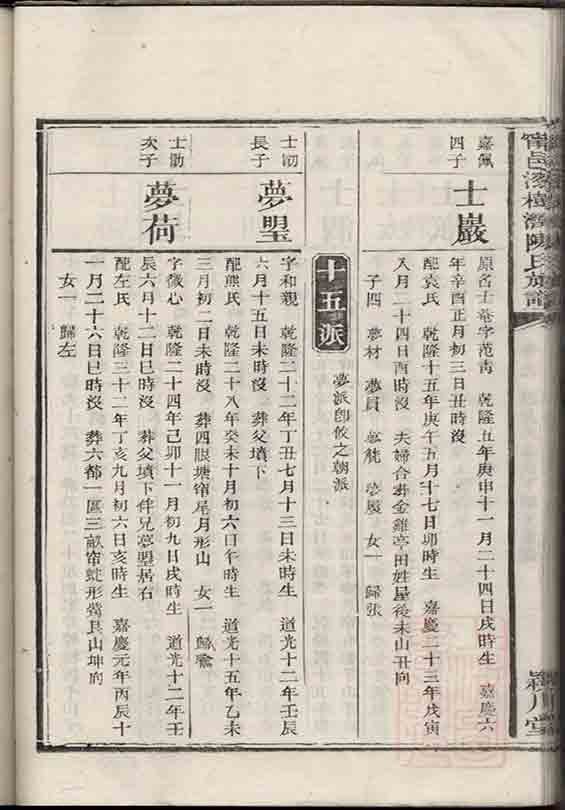 甯邑漆樹灣陳氏族譜
潁川堂
嘉佩
四子
士巖
原名士菴字范靑 乾隆五年庚申十一月二十四日戌時生 嘉慶六
年辛酉正月初三日丑時沒
配袁氏 乾隆十五年庚午五月十七日卯時生 嘉慶二十三年戊寅
八月二十四日酉時沒 夫婦合葬金雞亭田姓屋後未山丑向
子四 夢材 夢員 夢能 夢履 女一 歸張
十五派
夢派卽攸之朝派
士劭
長子
夢壆
字和親 乾隆二十二年丁丑七月十三日未時生 道光十二年壬辰
六月十五日未時沒 葬父墳下
配熊氏 乾隆二十八年癸未十月初六日午時生 道光十五年乙未
三月初二日未時沒 葬四眼塘甯尾月形山 女一 歸喩
士劭
次子
夢荷
字徵心 乾隆二十四年己卯十一月初九日戌時生 道光十二年壬
辰六月十二日巳時沒 葬父墳下伴兄夢壆居右
配左氏 乾隆三十二年丁亥九月初六日亥時生 嘉慶元年丙辰十
一月二十六日巳時沒 葬六都一區三畝帘蛇形嘴艮山坤向
女一 歸左